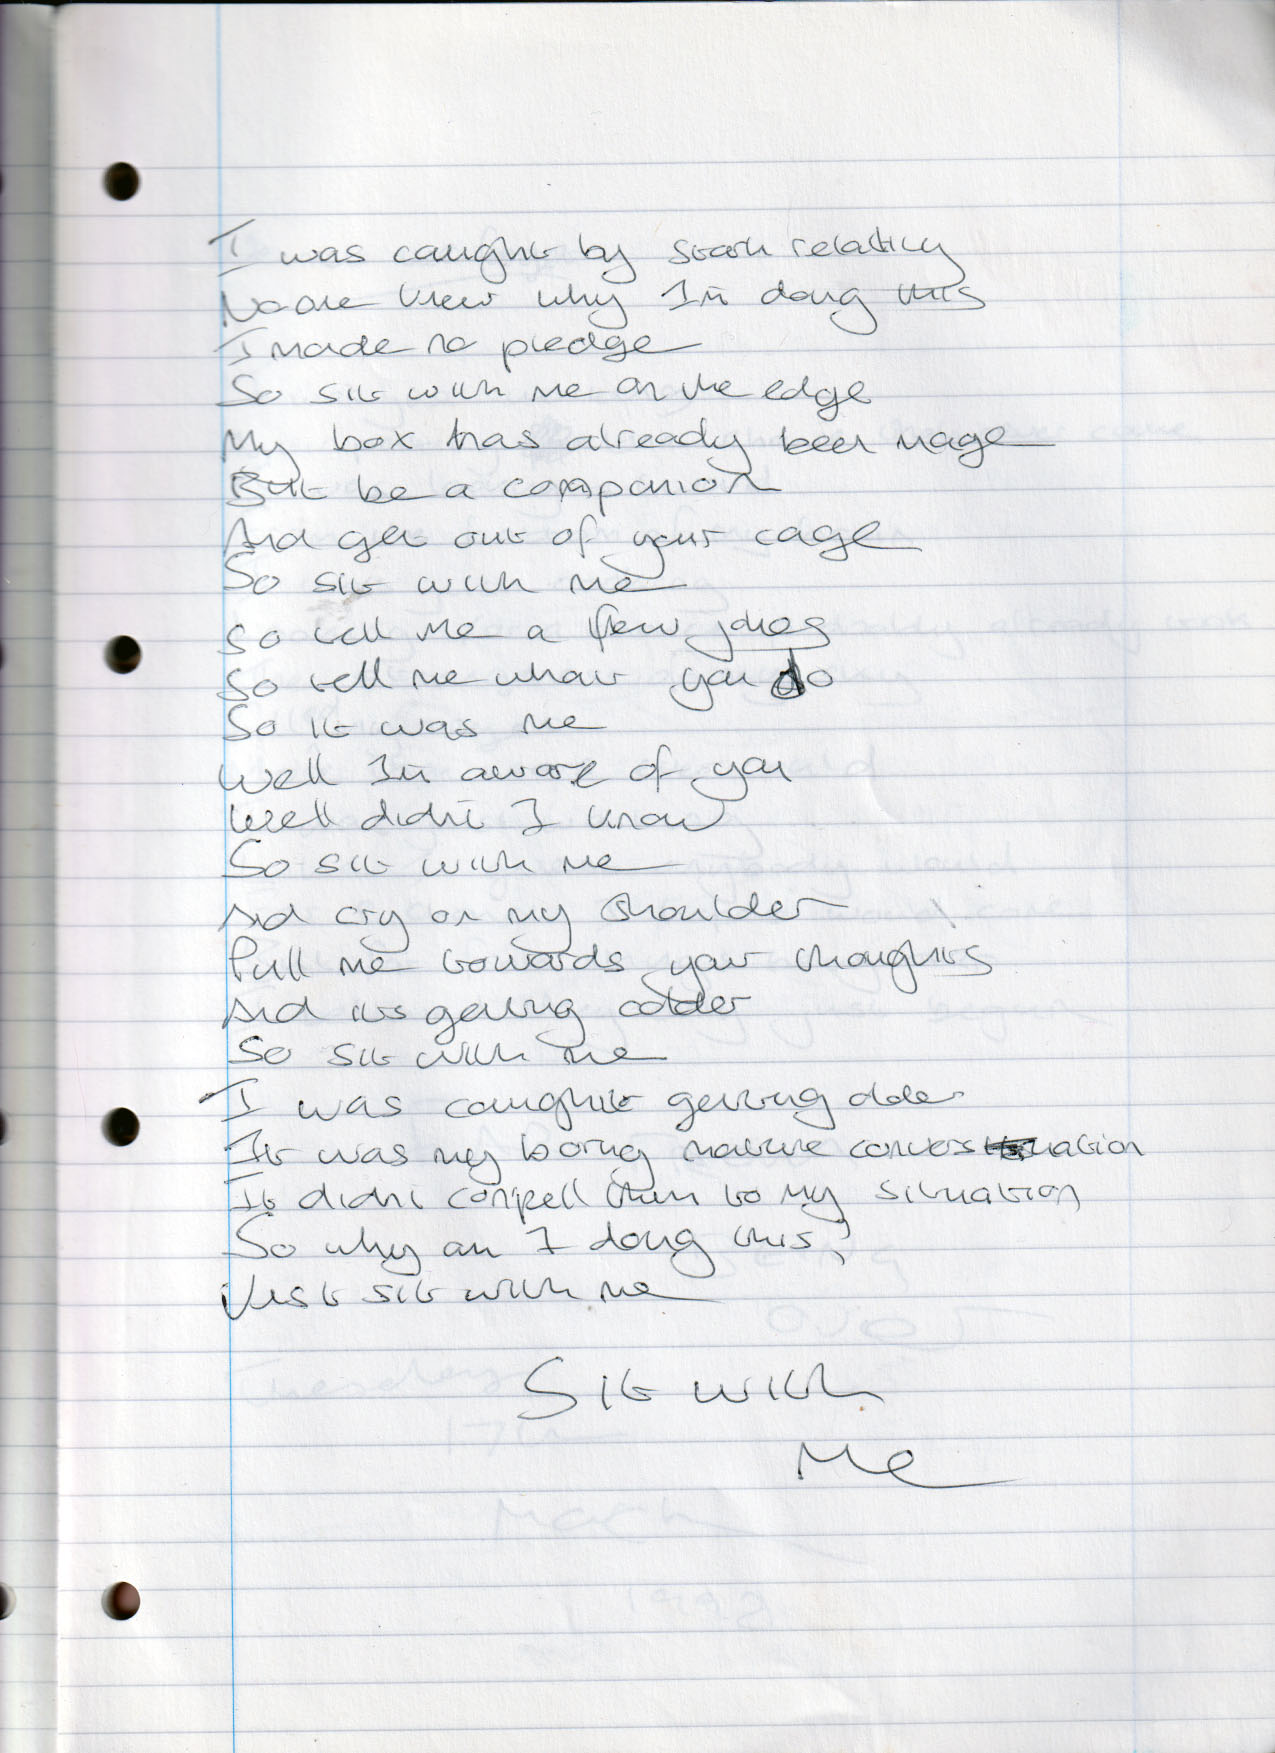 I was caught by stark relatity
No one knew why I'm doing this
I made no pledge
So sit with me on the edge
My box has already been
But be a companion
And get out of your cage
So sit with me
So tell me a few jokes
So tell me what you do
So it was me
Well I'm aware of you
Well didn't I know
So sit with me
And cry on my shoulder
Pull me towards your thoughts
And its getting colder
So sit with me
I was caught getting older
It was my boring mature
It didn't compell them to my situation
So why am I doing this?
Just sit with me
Sit with
Me
Tuesday
17th
March
1992